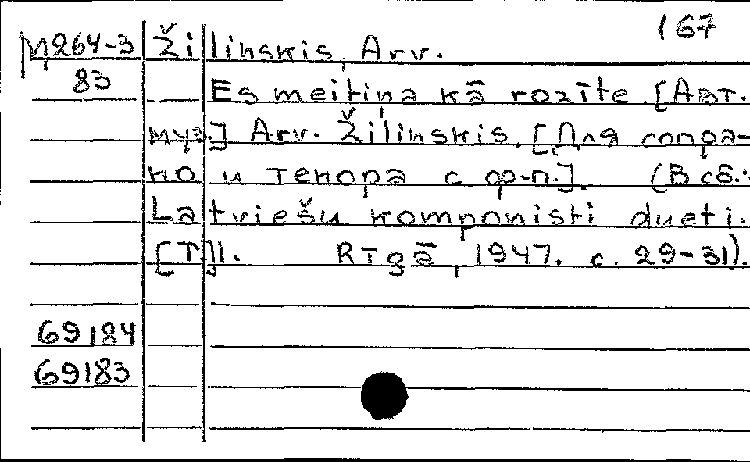 167
М264-3 Žilinskis, Arv.
83
Es meitiņa kā rozīte [Авт.
муз] Arv. Žiļinskis. [Для сопра-
но и тенора с ф-п.]. (В сб.:
Latviešu komponisti dueti.
[T]1. Rīgā, 1947. с. 29-31).
69184
69183